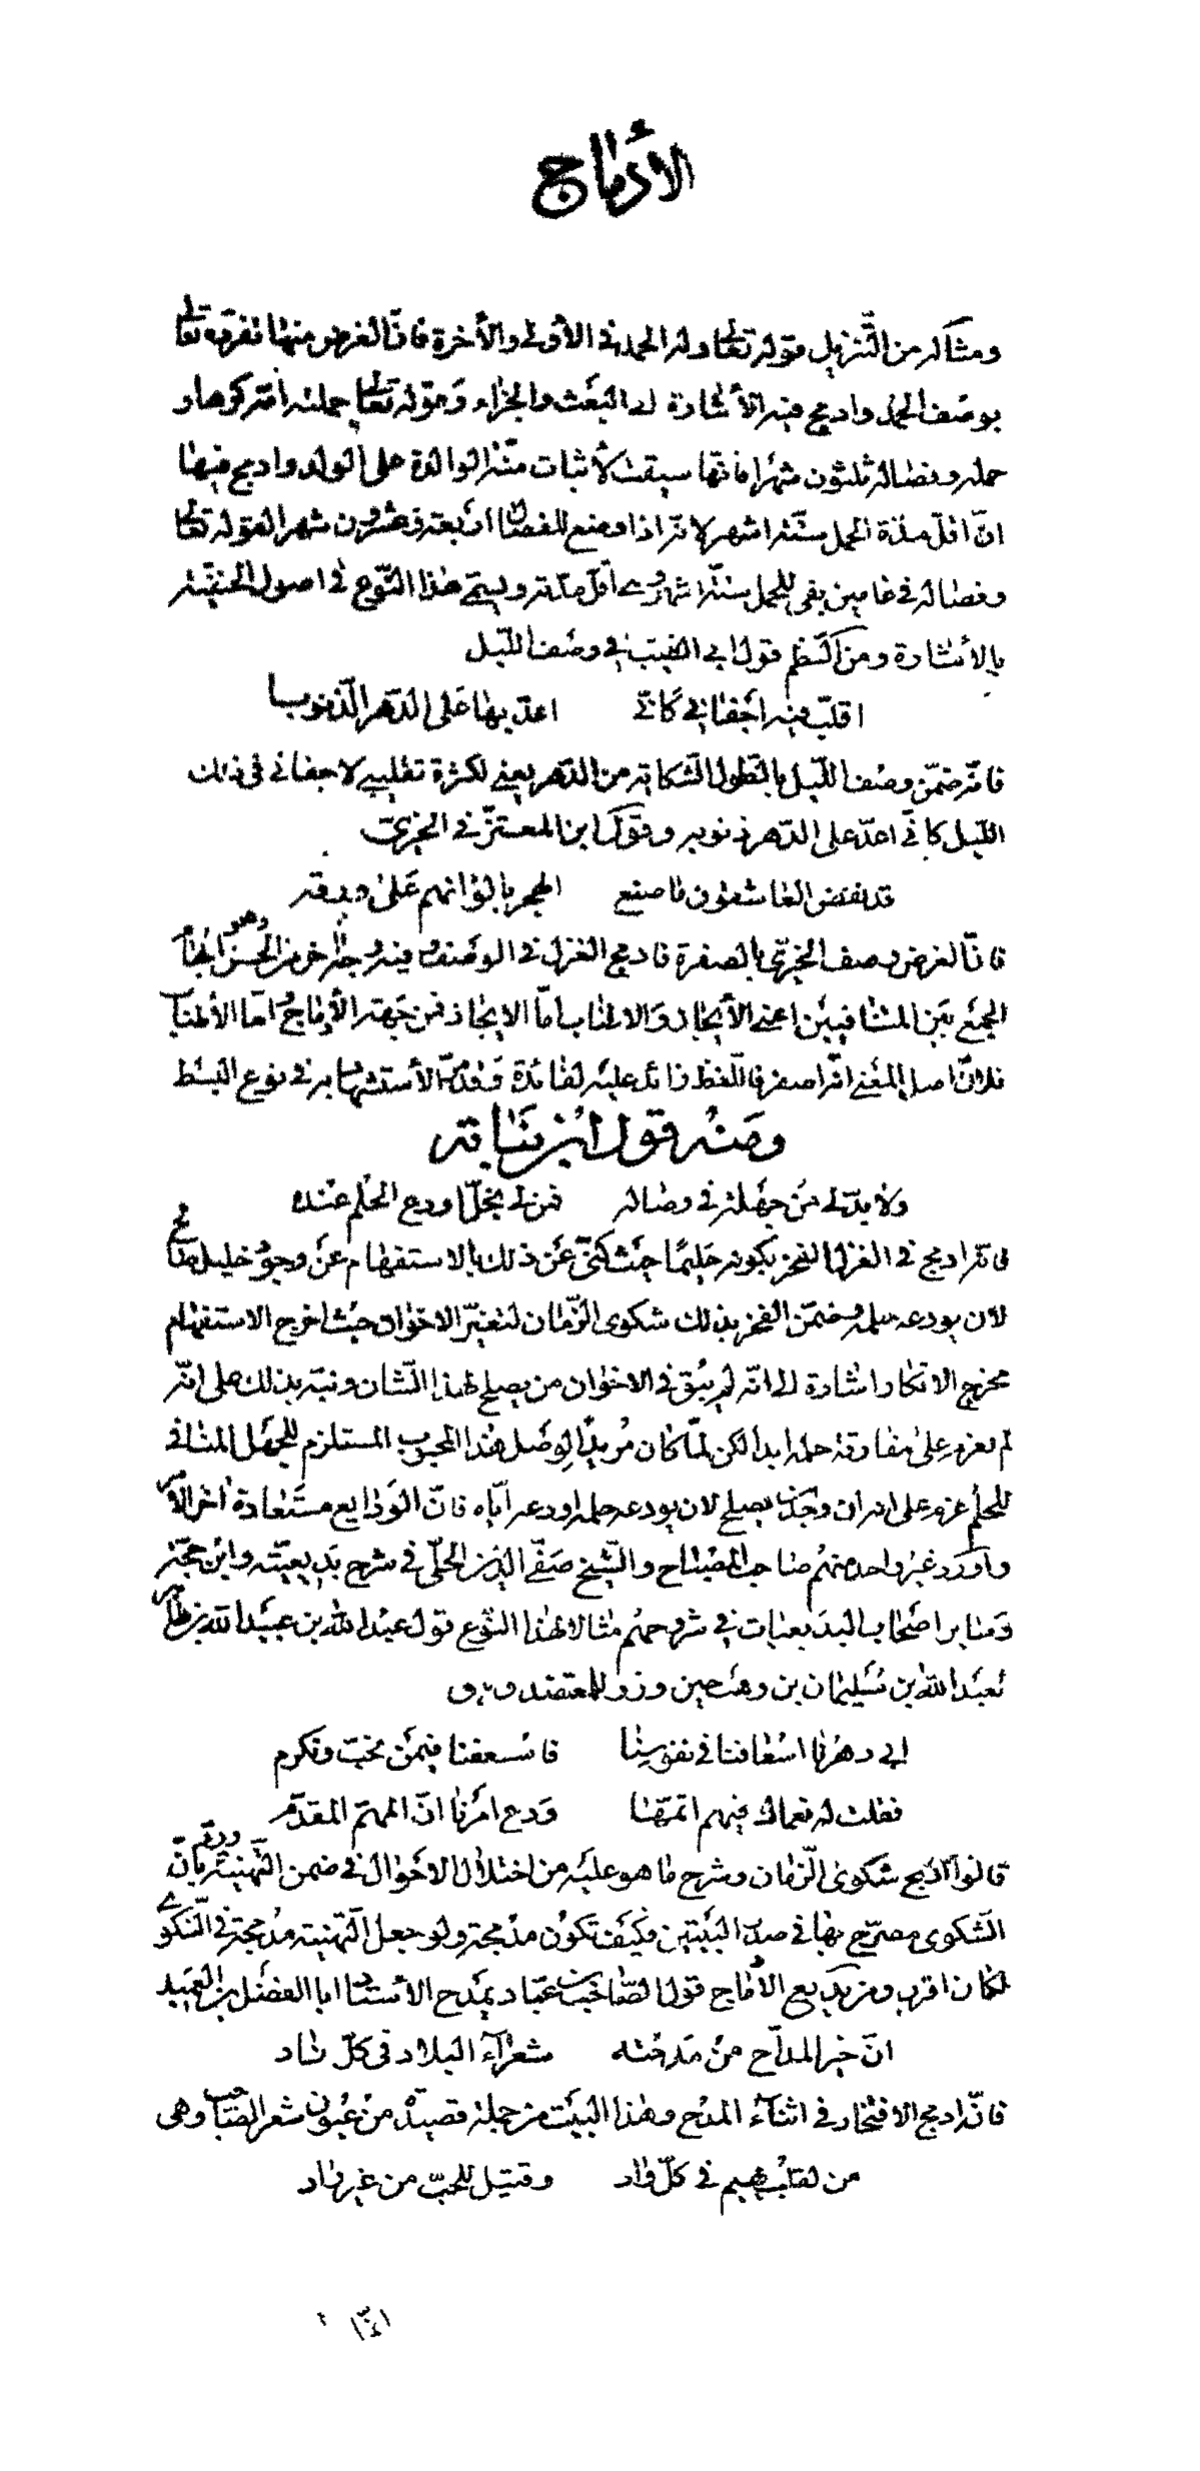 الأدماج
ومثاله من التّنزيل قوله تعالى وله الحمد في الأولى والأخرة فانّ الغرض منها تفرده تعالى
بوصف الحمد وادمج فيه الأشارة الى البعث والجزاء وقوله تعالى حملته امّه كرها و
حمله وفصاله ثلثون شهرا فانّها سيقت لأثبات منّة الوالدة على الولد وادمج فيها
انّ اقلّ مدّة الحمل ستّة اشهر لانّه اذا وضع للفصال اربعة وعشرون شهرا لقوله تعالى
وفصاله في عامين بقى للحمل ستّة اشهر وهى اقلّ مدّته ويسمّى هذا النّوع في اصول الحنفيّة
بالأشارة ومن النّظم قول ابي الطّيّب في وصف اللّيل
اقلّب فيه اجفاني كانّي اعدّ بها على الدّهر الذّنوبا
فانّه ضمّن وصف اللّيل بالطّول الشّكاية من الدّهر يعني لكثرة تقليبي لاجفاني في ذلك
اللّيل كانّي اعدّ على الدّهر ذنوبه وقول ابن المعتزّ في الخيريّ
قد نفض العاشقون ما صنع الهجر بالوانهم على ورقه
فانّ الغرض وصف الخيريّ بالصفرة فادمج الغزل في الوصف وفيه وجه اخر من الحسن وهو ايهام
الجمع بين المتنافيين اعني الأيجاز والاطناب امّا الايجاز فمن جهة الأدماج وامّا الأطناب
فلانّ اصل المعنى انّه اصفر فاللّفظ زائد عليه لفائدة وتقدّم الأستشهاد به في نوع البسط
ومنه قول ابن نباته
ولا بدّ لي من جهلة في وصاله فمن لي بخلّ اودع الحلم عنده
فانّه ادمج في الغزل الفخر بكونه حليما حيث كنّى عن ذلك بالاستفهام عن وجود خليل صالح
لان يودعه حلمه وضمّن الفخر بذلك شكوى الزّمان لتغيّر الاخوان حيث اخرج الاستفهام
مخرج الانكار اشارة الى انّه لم يبق في الاخوان من يصلح لهذا الشّان ونبّه بذلك على انّه
لم يعزم على مفارقة حلمه ابدا لكن لمّا كان مريدا لوصل هذا المحبوب المستلزم للجهل المنافي
للحلم عزم على انه ان وجد من يصلح لان يودعه حلمه اودعه ايّاه فانّ الودايع مستعادة اخر الامر
واورد غير واحد منهم صاحب المصباح والشّيخ صفيّ الدّين الحلّي في شرح بديعيّته وابن حجّة
وساير اصحاب البديعيات في شروحهم مثالا لهذا النّوع قول عبد الله بن عبيد الله بن طاهر
لعبيد الله بن سليمان بن وهب حين وزر للمعتضد وهو
ابى دهرنا اسعافنا في نفوسنا فاسعفنا فيمن نحبّ ونكرم
فقلت له نعماك فيهم اتمّها ودع امرنا انّ المهمّ المقدّم
قالوا ادمج شكوى الزّمان وشرح ما هو عليه من اختلال الاحوال في ضمن التّهنية وردّ بانّ
الشكوى مصرّح بها في صدر البيتين فكيف تكون مدمجة ولو جعل التّهنية مدمجة في الشكوى
لكان اقرب ومن بديع الأدماج قول الصّاحب بن عبّاد يمدح الأستاد ابا الفضل بن العميد
انّ خير المدّاح من مدحته شعرآء البلاد في كلّ ناد
فانّه ادمج الافتخار في اثنآء المدح وهذا البيت من جملة قصيدة من عيون شعر الصّاحب وهي
من لقلب يهيم في كلّ واد وقتيل للحبّ من غير واد